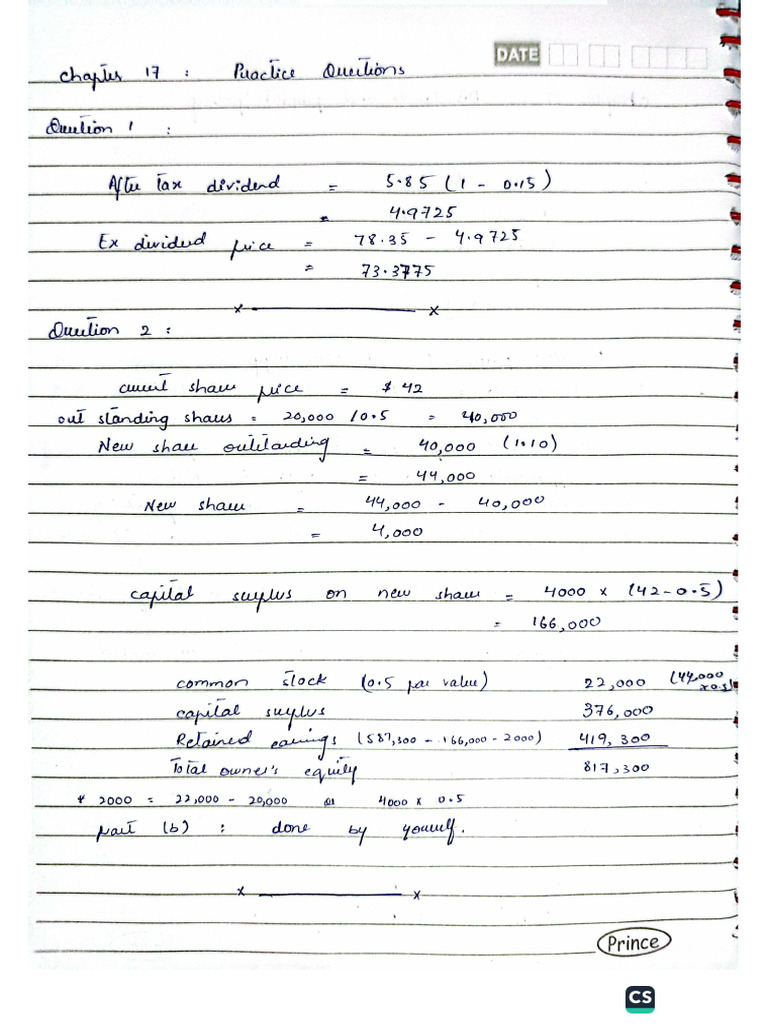 DATE
Chapter 17 : Practice Questions
Question 1 :
After Tax dividend = 5.85 (1 - 0.15)
= 4.9725
Ex dividend price = 78.35 - 4.9725
= 73.3775
x ——— x
Question 2 :
current share price = $ 42
out standing shares = 20,000 / 0.5 = 40,000
New share outstanding = 40,000 (1.10)
= 44,000
New share = 44,000 - 40,000
= 4,000
capital surplus on new share = 4000 x (42-0.5)
= 166,000
common stock (0.5 par value) 22,000 (44,000 x0.5)
capital surplus 376,000
Retained earnings (587,300 - 166,000 - 2000) 419,300
Total owner's equity 817,300
* 2000 = 22,000 - 20,000 or 4000 x 0.5
part (b) : done by yourself.
x ——— x
Prince
CS